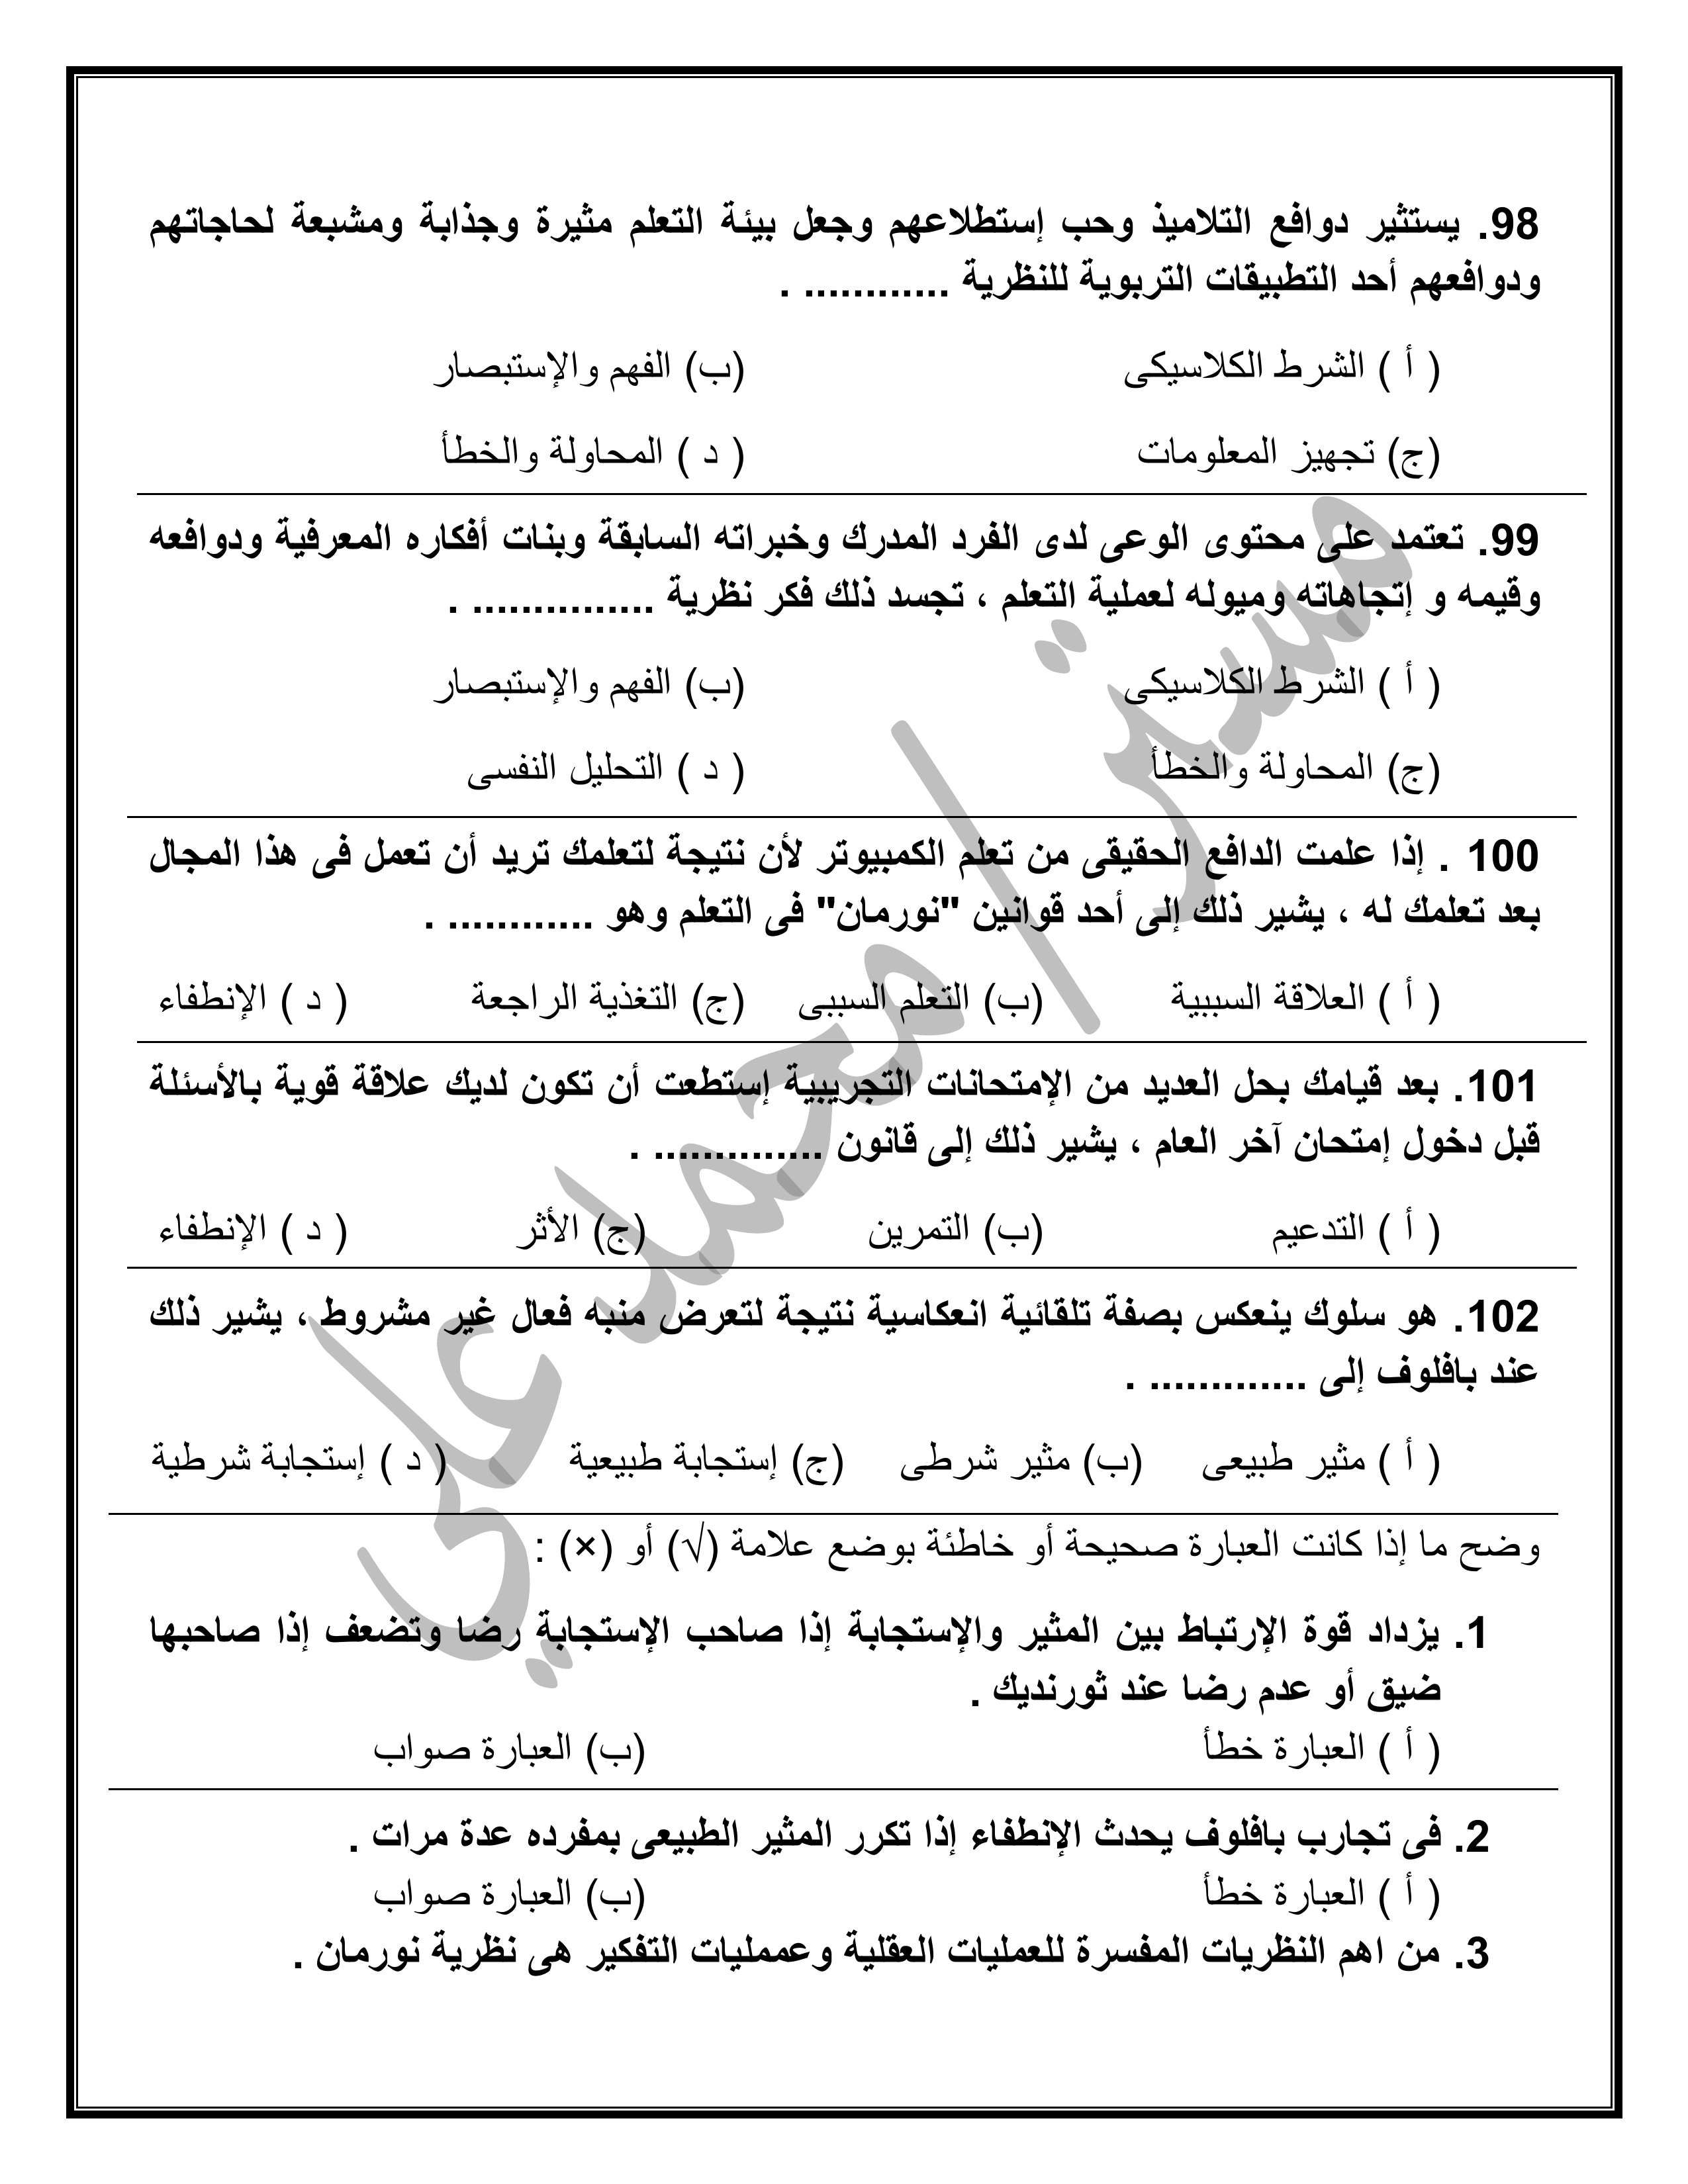 98. يستثير دوافع التلاميذ وحب إستطلاعهم وجعل بيئة التعلم مثيرة وجذابة ومشبعة لحاجاتهم
ودوافعهم أحد التطبيقات التربوية للنظرية ............ .
( أ ) الشرط الكلاسيكى (ب) الفهم والإستبصار
(ج) تجهيز المعلومات ( د ) المحاولة والخطأ
99. تعتمد على محتوى الوعى لدى الفرد المدرك وخبراته السابقة وبنات أفكاره المعرفية ودوافعه
وقيمه و إتجاهاته وميوله لعملية التعلم ، تجسد ذلك فكر نظرية ............... .
( أ ) الشرط الكلاسيكى (ب) الفهم والإستبصار
(ج) المحاولة والخطأ ( د ) التحليل النفسى
100 . إذا علمت الدافع الحقيقى من تعلم الكمبيوتر لأن نتيجة لتعلمك تريد أن تعمل فى هذا المجال
بعد تعلمك له ، يشير ذلك إلى أحد قوانين "نورمان" فى التعلم وهو ............ .
( أ ) العلاقة السببية (ب) التعلم السببى (ج) التغذية الراجعة ( د ) الإنطفاء
101. بعد قيامك بحل العديد من الإمتحانات التجريبية إستطعت أن تكون لديك علاقة قوية بالأسئلة
قبل دخول إمتحان آخر العام ، يشير ذلك إلى قانون .............. .
( أ ) التدعيم (ب) التمرين (ج) الأثر ( د ) الإنطفاء
102. هو سلوك ينعكس بصفة تلقائية انعكاسية نتيجة لتعرض منبه فعال غير مشروط ، يشير ذلك
عند بافلوف إلى ............. .
( أ ) مثير طبيعى (ب) مثير شرطى (ج) إستجابة طبيعية ( د ) إستجابة شرطية
وضح ما إذا كانت العبارة صحيحة أو خاطئة بوضع علامة (√) أو (×) :
1. يزداد قوة الإرتباط بين المثير والإستجابة إذا صاحب الإستجابة رضا وتضعف إذا صاحبها
ضيق أو عدم رضا عند ثورنديك .
( أ ) العبارة خطأ (ب) العبارة صواب
2. فى تجارب بافلوف يحدث الإنطفاء إذا تكرر المثير الطبيعى بمفرده عدة مرات .
( أ ) العبارة خطأ (ب) العبارة صواب
3. من اهم النظريات المفسرة للعمليات العقلية وعممليات التفكير هى نظرية نورمان .
مستر / محمد علي